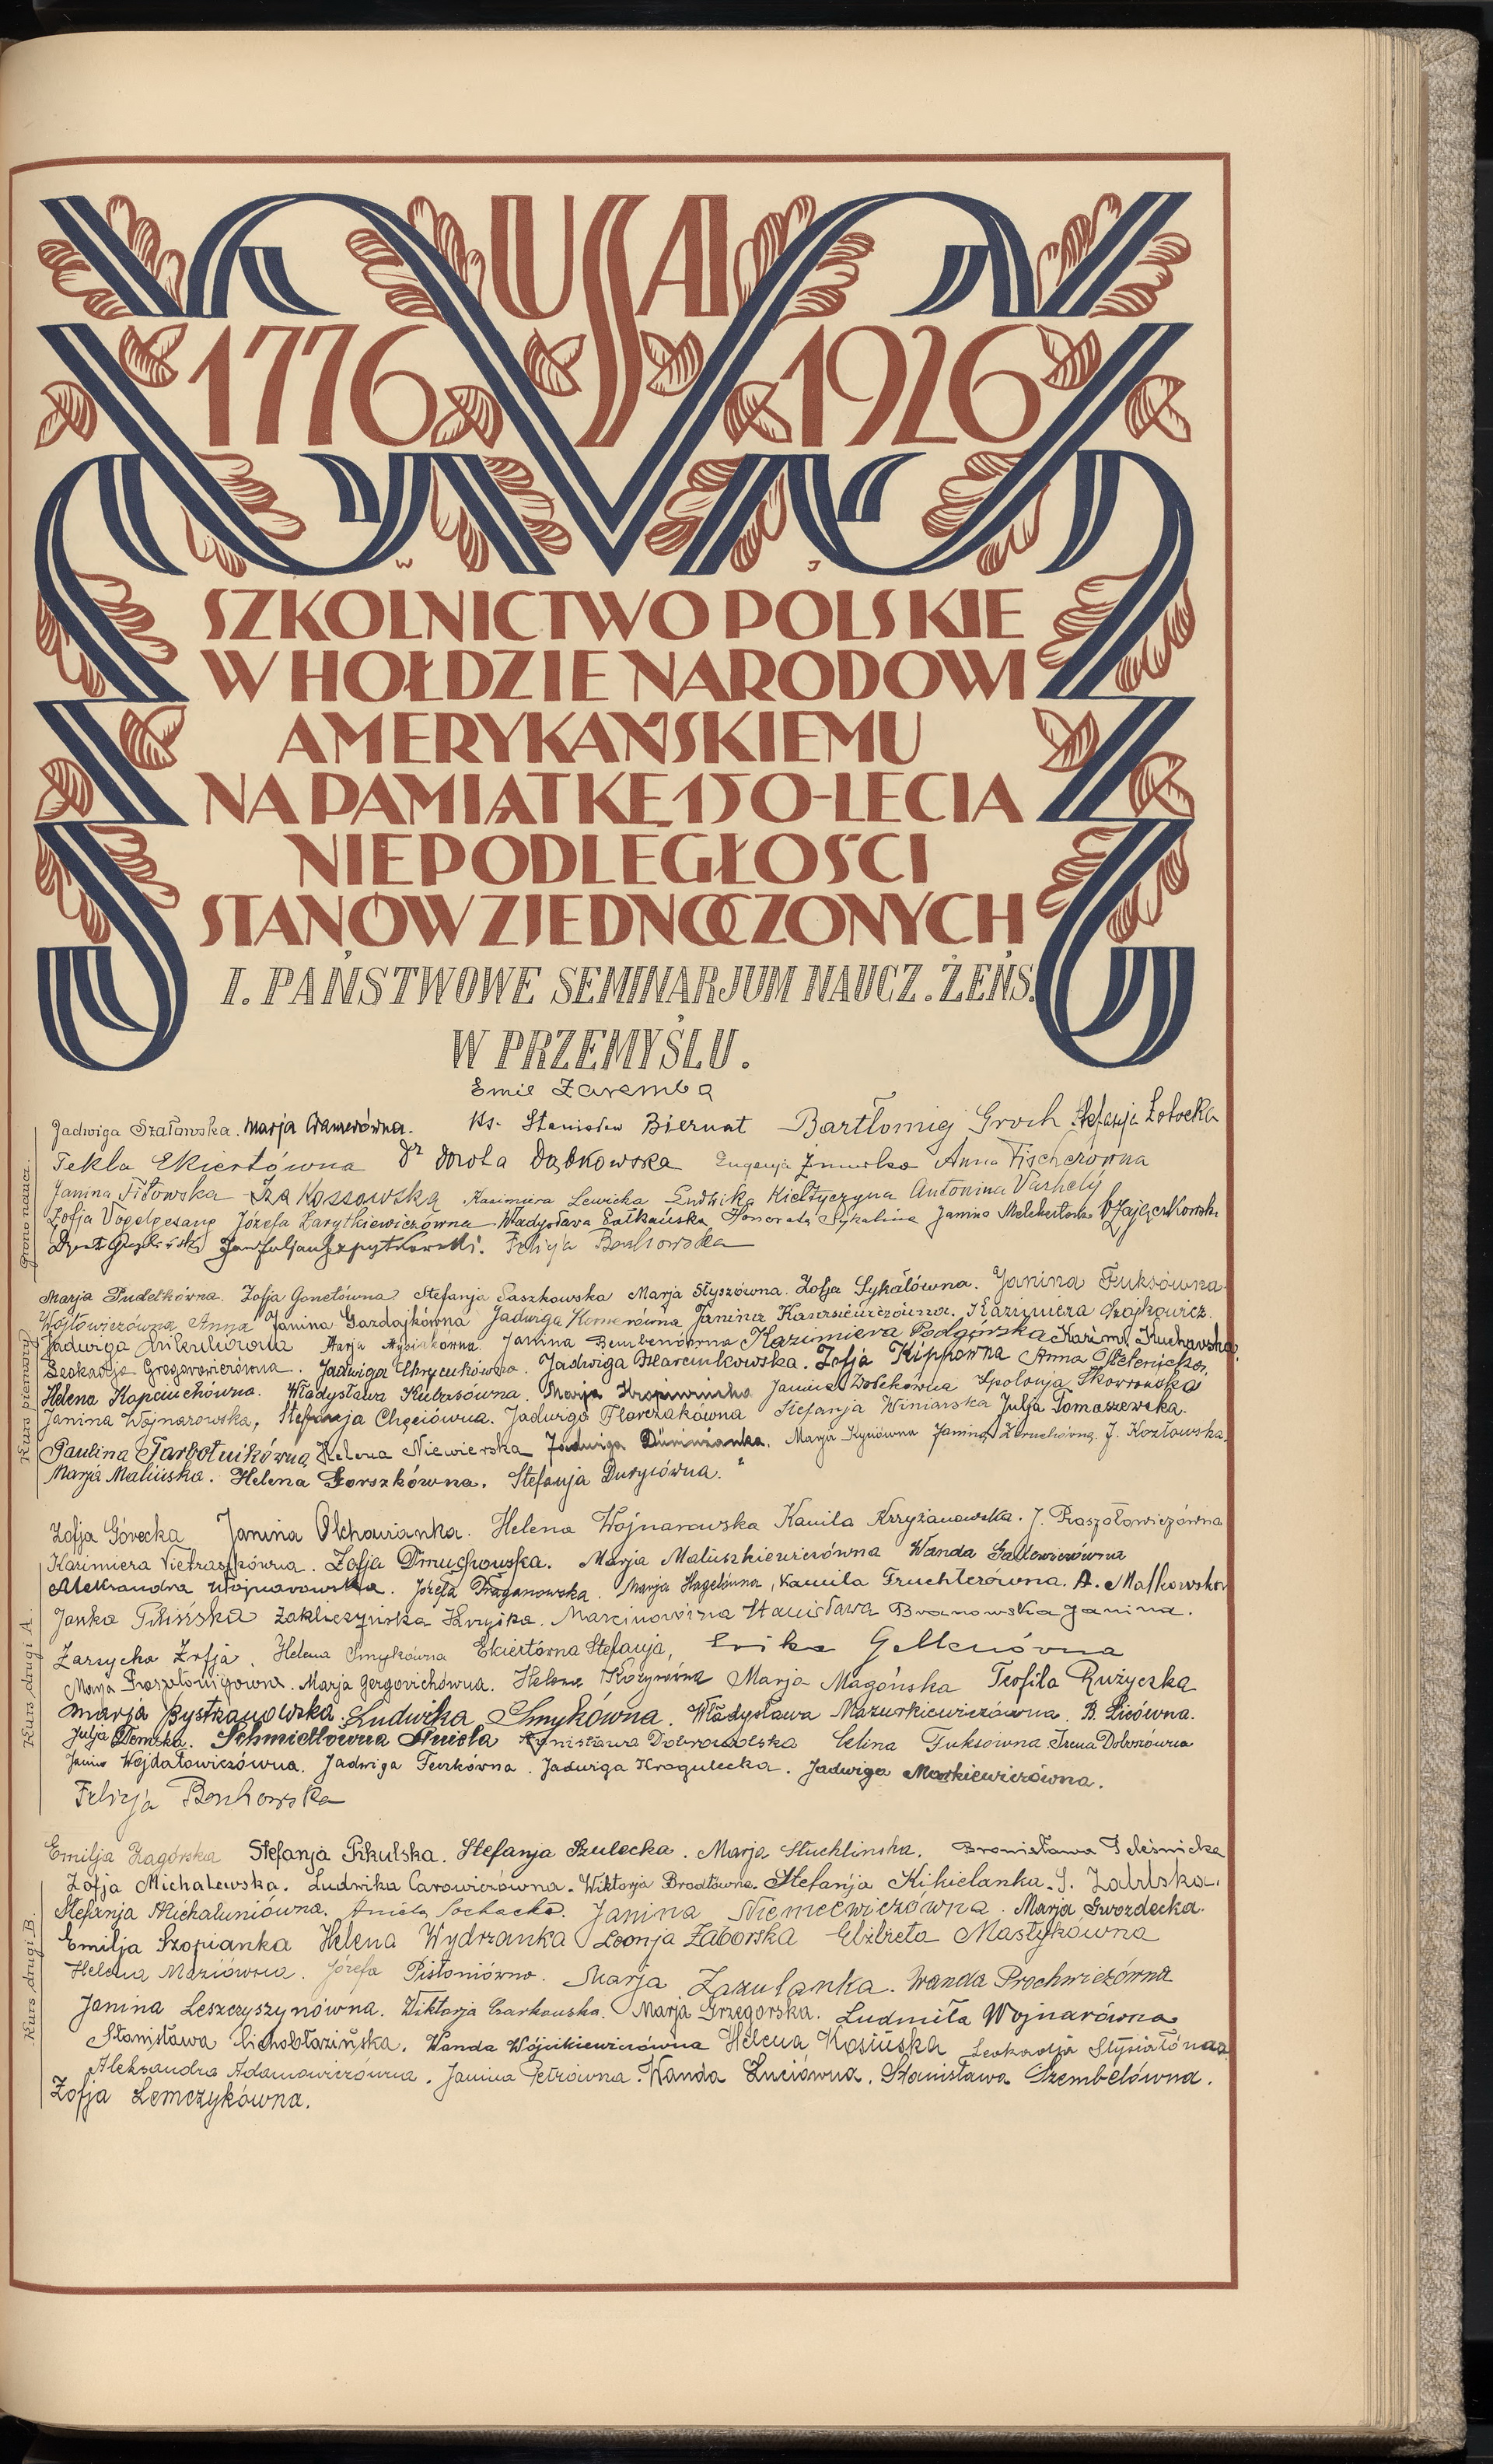 USA
1776 1926
W J
SZKOLNICTWO POLSKIE
W HOŁDZIE NARODOWI
AMERYKAŃSKIEMU
NA PAMIĄTKĘ 150-LECIA
NIEPODLEGŁOŚCI
STANÓW ZJEDNOCZONYCH
I. PAŃSTWOWE SEMINARJUM NAUCZ. ŻEŃS.
W PRZEMYŚLU.
Emil Zaremba
Grono naucz.
Jadwiga Szałowska. Marja Cramerówna. Ks. Stanisław Biernat Bartłomiej Groch Stefanja Łotocka
Tekla Ekiertówna Dr Dorota Dąbkowska Eugenja Żmurko Anna Fischerówna
Janina Fitowska Iza Kossowska Kazimiera Lewicka Ludwika Kiełtyczyna Antonina Varhely
Zofja Vogelgesang Józefa Zarytkiewiczówna Władysława Całkańska Honorata Sykalina Janina Melchertówna
Felicja Bońkowska
Kurs pierwszy
Marja Pudełkówna. Zofja Gonetówna Stefanja Paszkowska Marja Słyszówna. Zofja Sykałówna. Janina Fuksówna
Wójtowiczówna Anna Janina Gazdajkówna Jadwiga Komerówna Janina Kazimiera Czajkowicz.
Jadwiga Marja Mysiakówna. Janina Bembenówna Kazimiera Podgórska Kazim. Kucharska.
Leokadja Gregorowiczówna. Jadwiga Chrycukówna. Jadwiga Marcinkowska. Zofja Kipkówna Anna
Helena Kapciuchówna. Władysława Kubasówna. Marja Kropiwnicka Janina Apolonja Skowrońska
Janina Wojnarowska, Stefanja Chęciówna. Jadwiga Florczakówna Stefanja Winiarska Julja Tomaszewska.
Paulina Tarbotnikówna Helena Niewierska Jadwiga Marja Kyciówna Janina J. Kozłowska.
Marja Malińska. Helena Gorszkówna. Stefanja Dutysówna.
Kurs drugi A
Zofja Górecka Janina Olchawianka. Helena Wojnarowska Kamila Krzyżanowska. J. Raszołowiczówna
Kazimiera Pietraszkówna. Zofja Dmuchowska. Marja Maliszkiewiczówna Wanda
Aleksandra Wojnarowska. Józefa Draganowska. Marja Hagelówna, Kamila Fruchterówna. A. Małkowska
Janka Pilińska Zakliczyńska Marcinowiczna Stanisława Branowska Janina.
Zarzycka Zofja. Helena Smykówna Ekiertówna Stefanja, Erika
Marja Marja Gergovichówna. Helena Marja Magońska Teofila Rużycka
Marja Bystrzanowska. Ludwika Smykówna. Władysława Mazurkiewiczówna. B. Licówna.
Julja Demska. Schmidtówna Aniela Bronisława Dobrowolska Celina Fuksówna. Irena
Janina Wojdałowiczówna. Jadwiga Tenkówna. Jadwiga Kragulecka. Jadwiga Markiewiczówna.
Felicja Bońkowska
Kurs drugi B.
Emilja Zagórska Stefanja Pikulska. Stefanja Szulecka. Marja Stuchlińska. Bronisława Teleśnicka
Zofja Michalewska. Ludwika Carowiczówna. Wiktorja Brodtówna. Stefanja Kikielanka. S. Zabilska.
Stefanja Michałuniówna. Aniela Sochacka. Janina Niemcewiczówna. Marja Gwozdecka.
Emilja Szopianka Helena Wydrzanka Leonja Zaborska Elżbieta Mastykówna
Helena Maziówna. Józefa Pistoniówna. Marja Zazulanka. Wanda Prochwiczówna
Janina Leszczyszynówna. Wiktorja Czarkowska. Marja Grzegorska. Ludmiła Wojnarówna
Stanisława Cichobłazińska. Wanda Wójcikiewiczówna Helena Kosińska Leokadja Stysiałówna
Aleksandra Adamowiczówna. Janina Petrówna. Wanda Łuciówna. Stanisława Szembelówna.
Zofja Lemczykówna.